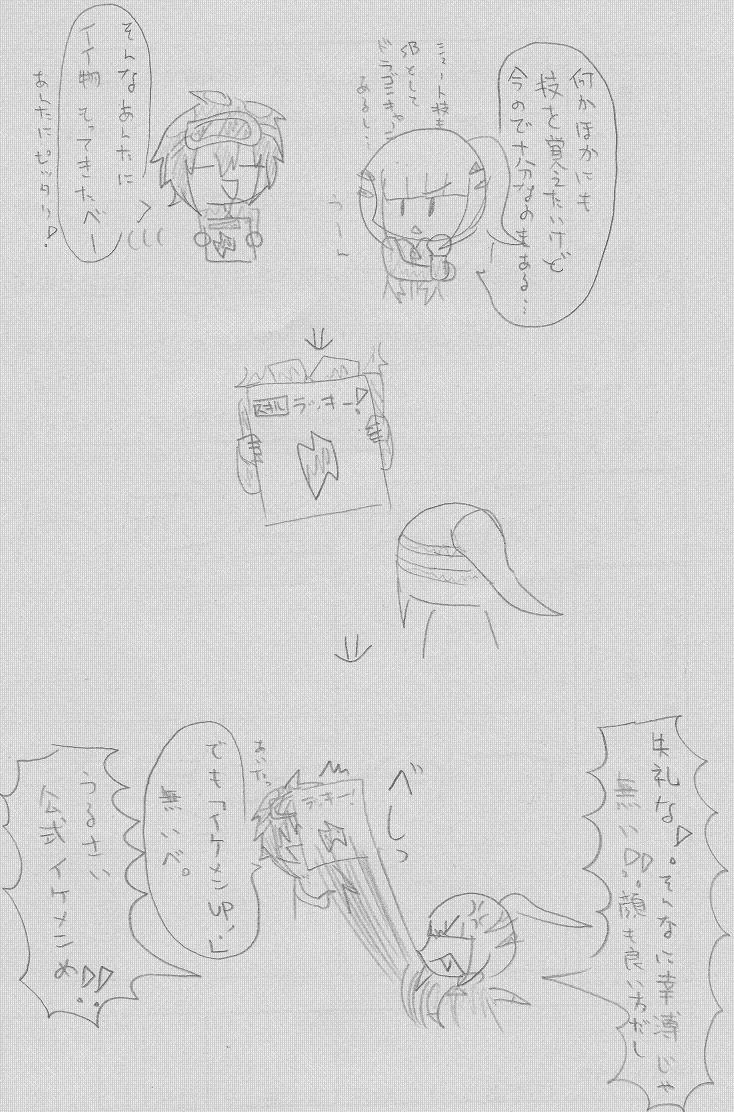 何かほかにも
技を覚えたいけど
今ので十分なのもある…
シュート技も
SBとして
ドラゴンキャノン
あるし…
うーん
そんなあんたに
イイ物もってきたべー
あんたにピッタリ!
スキル ラッキー!
失礼な!。そんなに幸薄じゃ
無い!!。顔も良い方だし
べしっ
ラッキー!
あいたっ
でも「イケメンUP!」
無いべ。
うるさい
公式イケメンめ!!